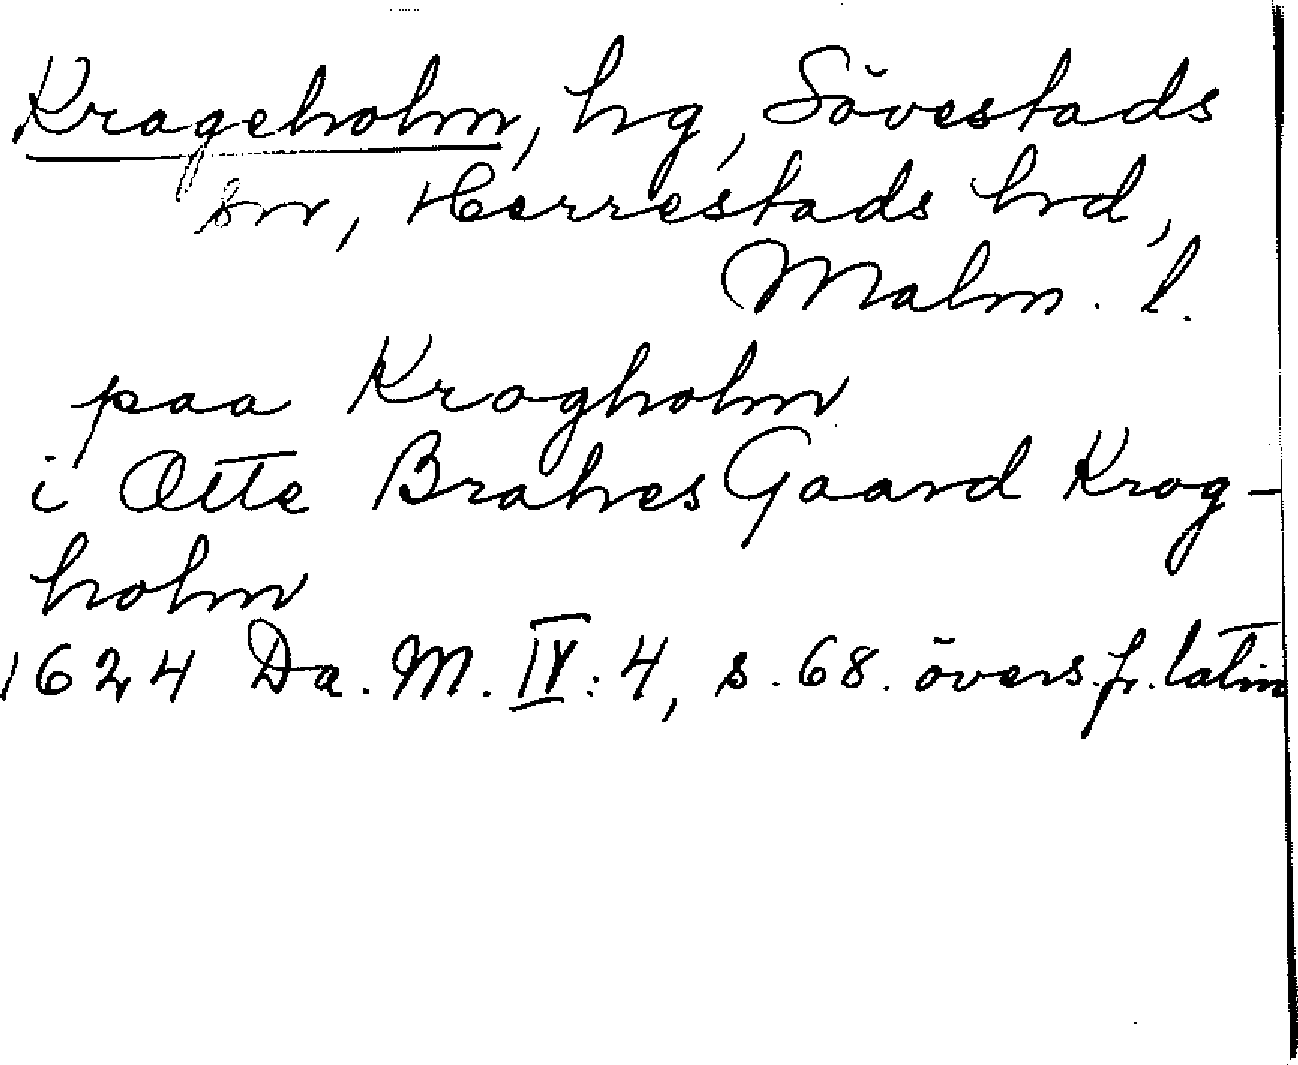 Krageholm, hg, Sövestads
sn, Herrestads hrd,
Malm. l.
paa Kragholm
i Otte Brahes Gaard Krag-
holm
1624 Da. M. IV: 4, s. 68. övers. fr. latin